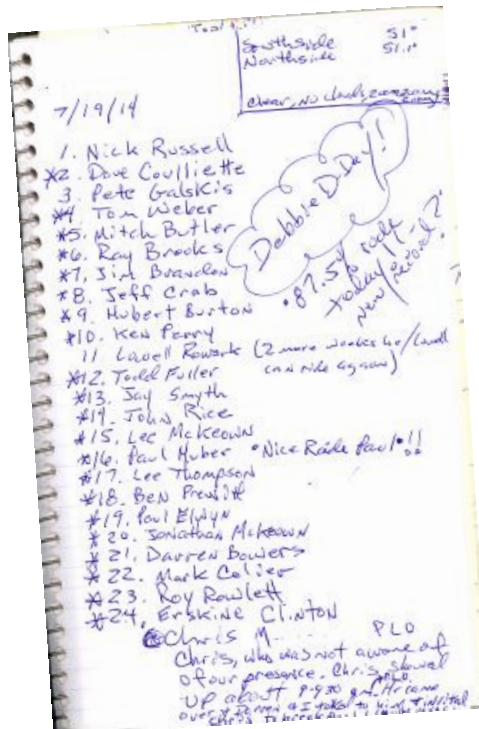 Southside 51°
Northside 51.1°
Clear, No clouds,
7/19/14
Debbie D-Day!
• 87.5% rode
today! -
New record?
1. Nick Russell
*2. Dave Coulliette
3 Pete Galskis
*4. Tom Weber
*5. Mitch Butler
*6. Ray Brooks
*7. Jim Brandon
*8. Jeff Crab
*9. Hubert Burton
*10. Ken Perry
11 Lowell Rowark (2 more weeks he/Lowell
can ride again)
*12. Todd Fuller
*13. Jay Smyth
*14. John Rice
*15. Lee McKeown
*16. Paul Huber • Nice Ride Paul • !!
*17. Lee Thompson
*18. Ben Prewitt
*19. Paul Elwyn
*20. Jonathan McKeown
*21. Darren Bowers
*22. Mark Colier
*23. Roy Rowlett
*24. Erskine Clinton
Chris M. PLO
Chris, who was not aware of
of our presence. Chris showed
up about 9-9:30 am. He came
over & Darren & I talked to him & invited